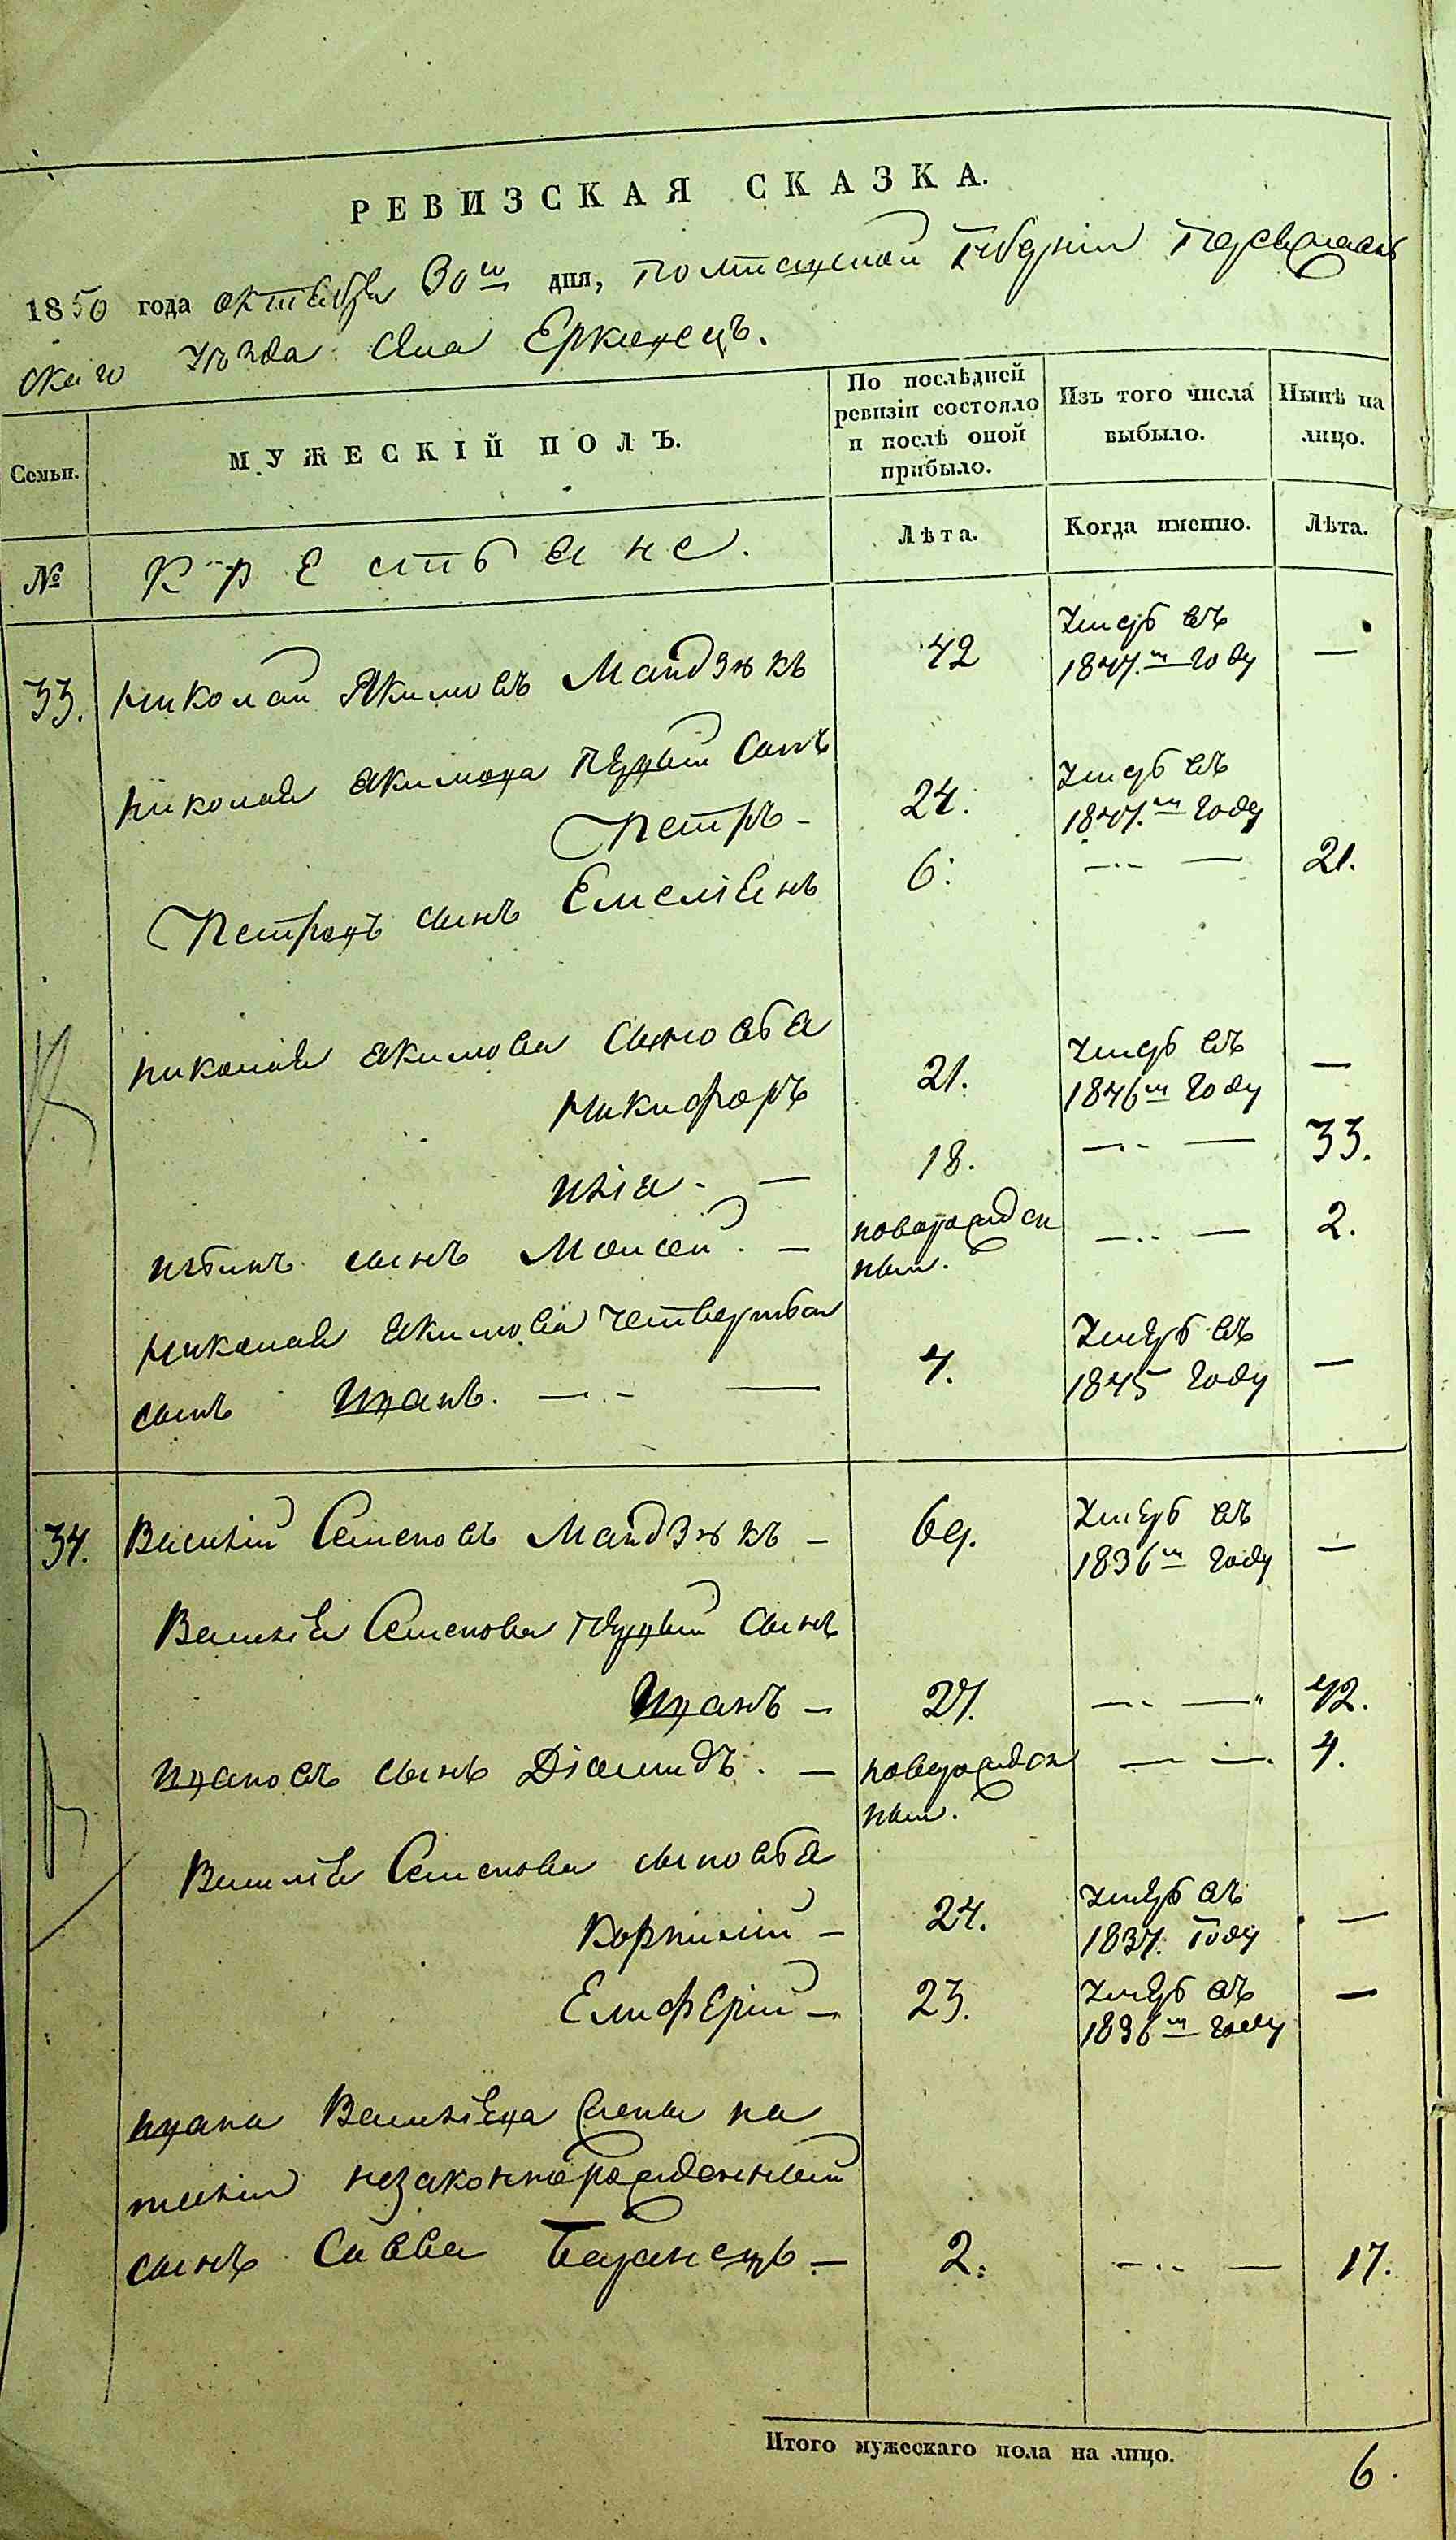 РЕВИЗСКАЯ СКАЗКА.
1850 года октября 30го дня, Полтавской Губерніи Переяслав
скаго Уѣзда Села Еркавецъ.
Семьи.
МУЖЕСКІЙ ПОЛЪ.
По послѣдней ревизіи состояло и послѣ оной прибыло.
Изъ того числа выбыло.
Нынѣ на лицо.
№
Крестьяне.
Лѣта.
Когда именно.
Лѣта.
33. Николай Якимовъ Майдзюкъ 42 Умеръ въ 1847.м году —
Николая Якимова первый сынъ
Петръ - 24. Умеръ въ 1847.м году
Петровъ сынъ Емеліянъ 6. — 21.
Николая Якимова сыновья
Никифоръ 21. Умеръ въ 1846м году —
Илія - — 18. — 33.
Ильинъ сынъ Моисей. — новорожден ный. — 2.
Николая Якимова четвертый
сынъ Иванъ. — 4. Умеръ въ 1845 году —
34. Василій Семеновъ Майдзюкъ — 69. Умеръ въ 1836м году —
Василія Семенова первый сынъ
Иванъ — 27. — 42.
Ивановъ сынъ Діомидъ. — новорожден ный. — 4.
Василія Семенова сыновья
Корнилій — 24. Умеръ въ 1837. Году —
Елиферій — 23. Умеръ въ 1836м году —
Ивана Васильева жены На
таліи незаконнорожденный
сынъ Савва — 2. — 17.
Итого мужескаго пола на лицо. 6.